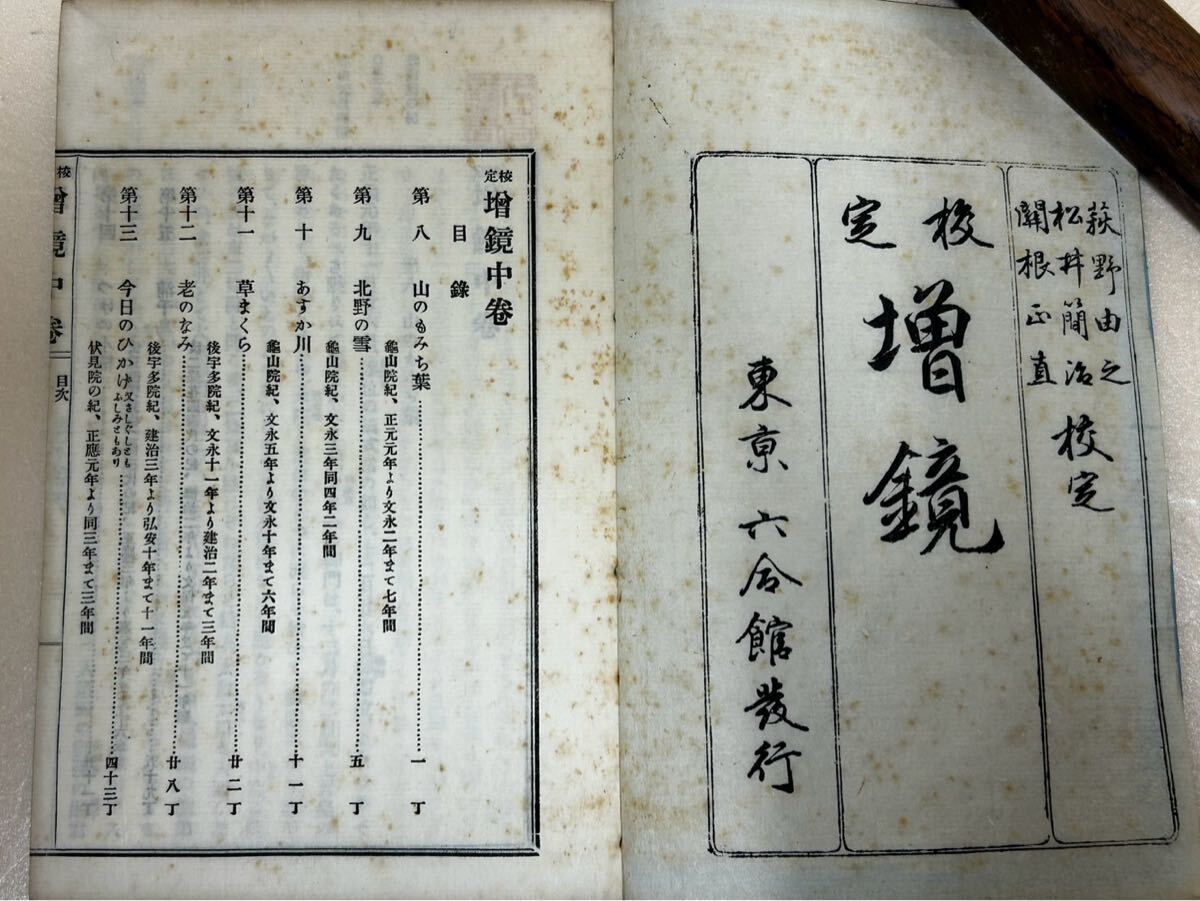 萩野由之
松井簡治 校定
關根正直
校定
增鏡
東京 六合館發行
校定 增鏡中卷
目錄
第八 山のもみち葉 一丁
龜山院紀、正元元年より文永二年まて七年間
第九 北野の雪 五丁
龜山院紀、文永三年同四年二年間
第十 あすか川 十一丁
龜山院紀、文永五年より文永十年まて六年間
第十一 草まくら 廿二丁
後宇多院紀、文永十一年より建治二年まて三年間
第十二 老のなみ 廿八丁
後宇多院紀、建治三年より弘安十年まて十一年間
第十三 今日のひかげ 又さしぐしとも ふしみともあり 四十三丁
伏見院の紀、正應元年より同三年まて三年間
校 增鏡中卷 目次